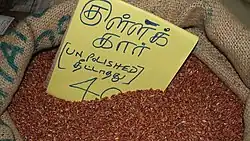 குள்ளக்
கார்
[UN POLISHED]
தீட்டாதது